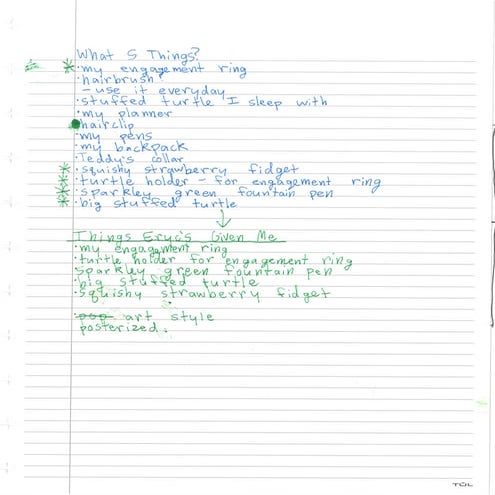 What 5 Things?
· my engagement ring
· hairbrush?
- use it everyday
· stuffed turtle I sleep with
· my planner
hairclip
· my pens
· my backpack
· Teddy's collar
· squishy strawberry fidget
· turtle holder - for engagement ring
· sparkley green fountain pen
· big stuffed turtle
Things Eryc's Given Me
· my engagement ring
· turtle holder for engagement ring
· sparkley green fountain pen
· big stuffed turtle
· squishy strawberry fidget
· pop art style
posterized.
TUL